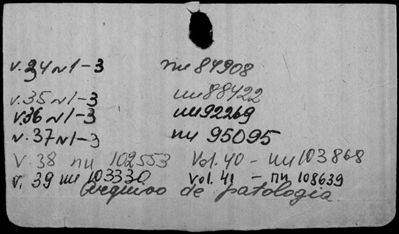 v.34 N1-3 пи 84908
v.35 N1-3 пи 88422
v.36 N1-3 пи 92269
v.37 N1-3 пи 95095
V.38 пи 102553 Vol.40 - пи 103868
v. 39 пи 103330 Vol. 41 - пи 108639
Arquivo de patologia